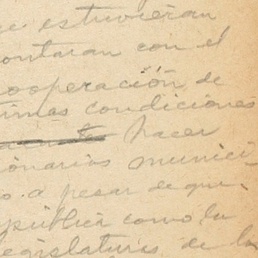 estuvieran
contaran con el
cooperación de
timas condiciones
hacer
ionarios munici
o a pesar de que
pública como la
legislatura de la